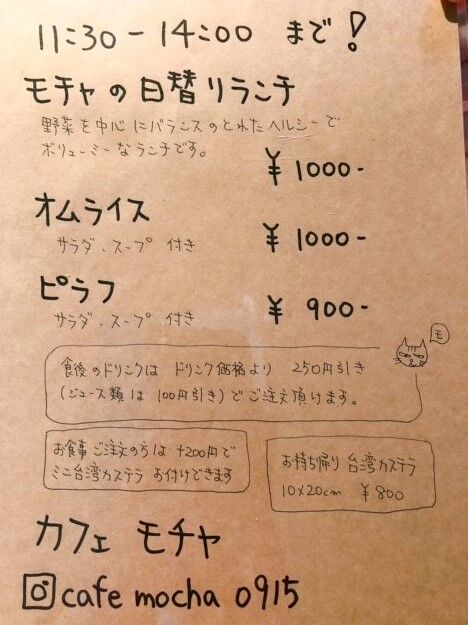 11:30-14:00 まで!
モチャの日替りランチ
野菜を中心にバランスのとれたヘルシーで
ボリューミーなランチです。
¥1000-
オムライス
¥1000-
サラダ、スープ 付き
ピラフ
¥900-
サラダ、スープ 付き
モ
食後のドリンクは ドリンク価格より 250円引き
(ジュース類は 100円引き)でご注文頂けます。
お食事ご注文の方は +200円で
ミニ台湾カステラ お付けできます
お持ち帰り 台湾カステラ
10×20cm ¥800
カフェ モチャ
cafe mocha 0915